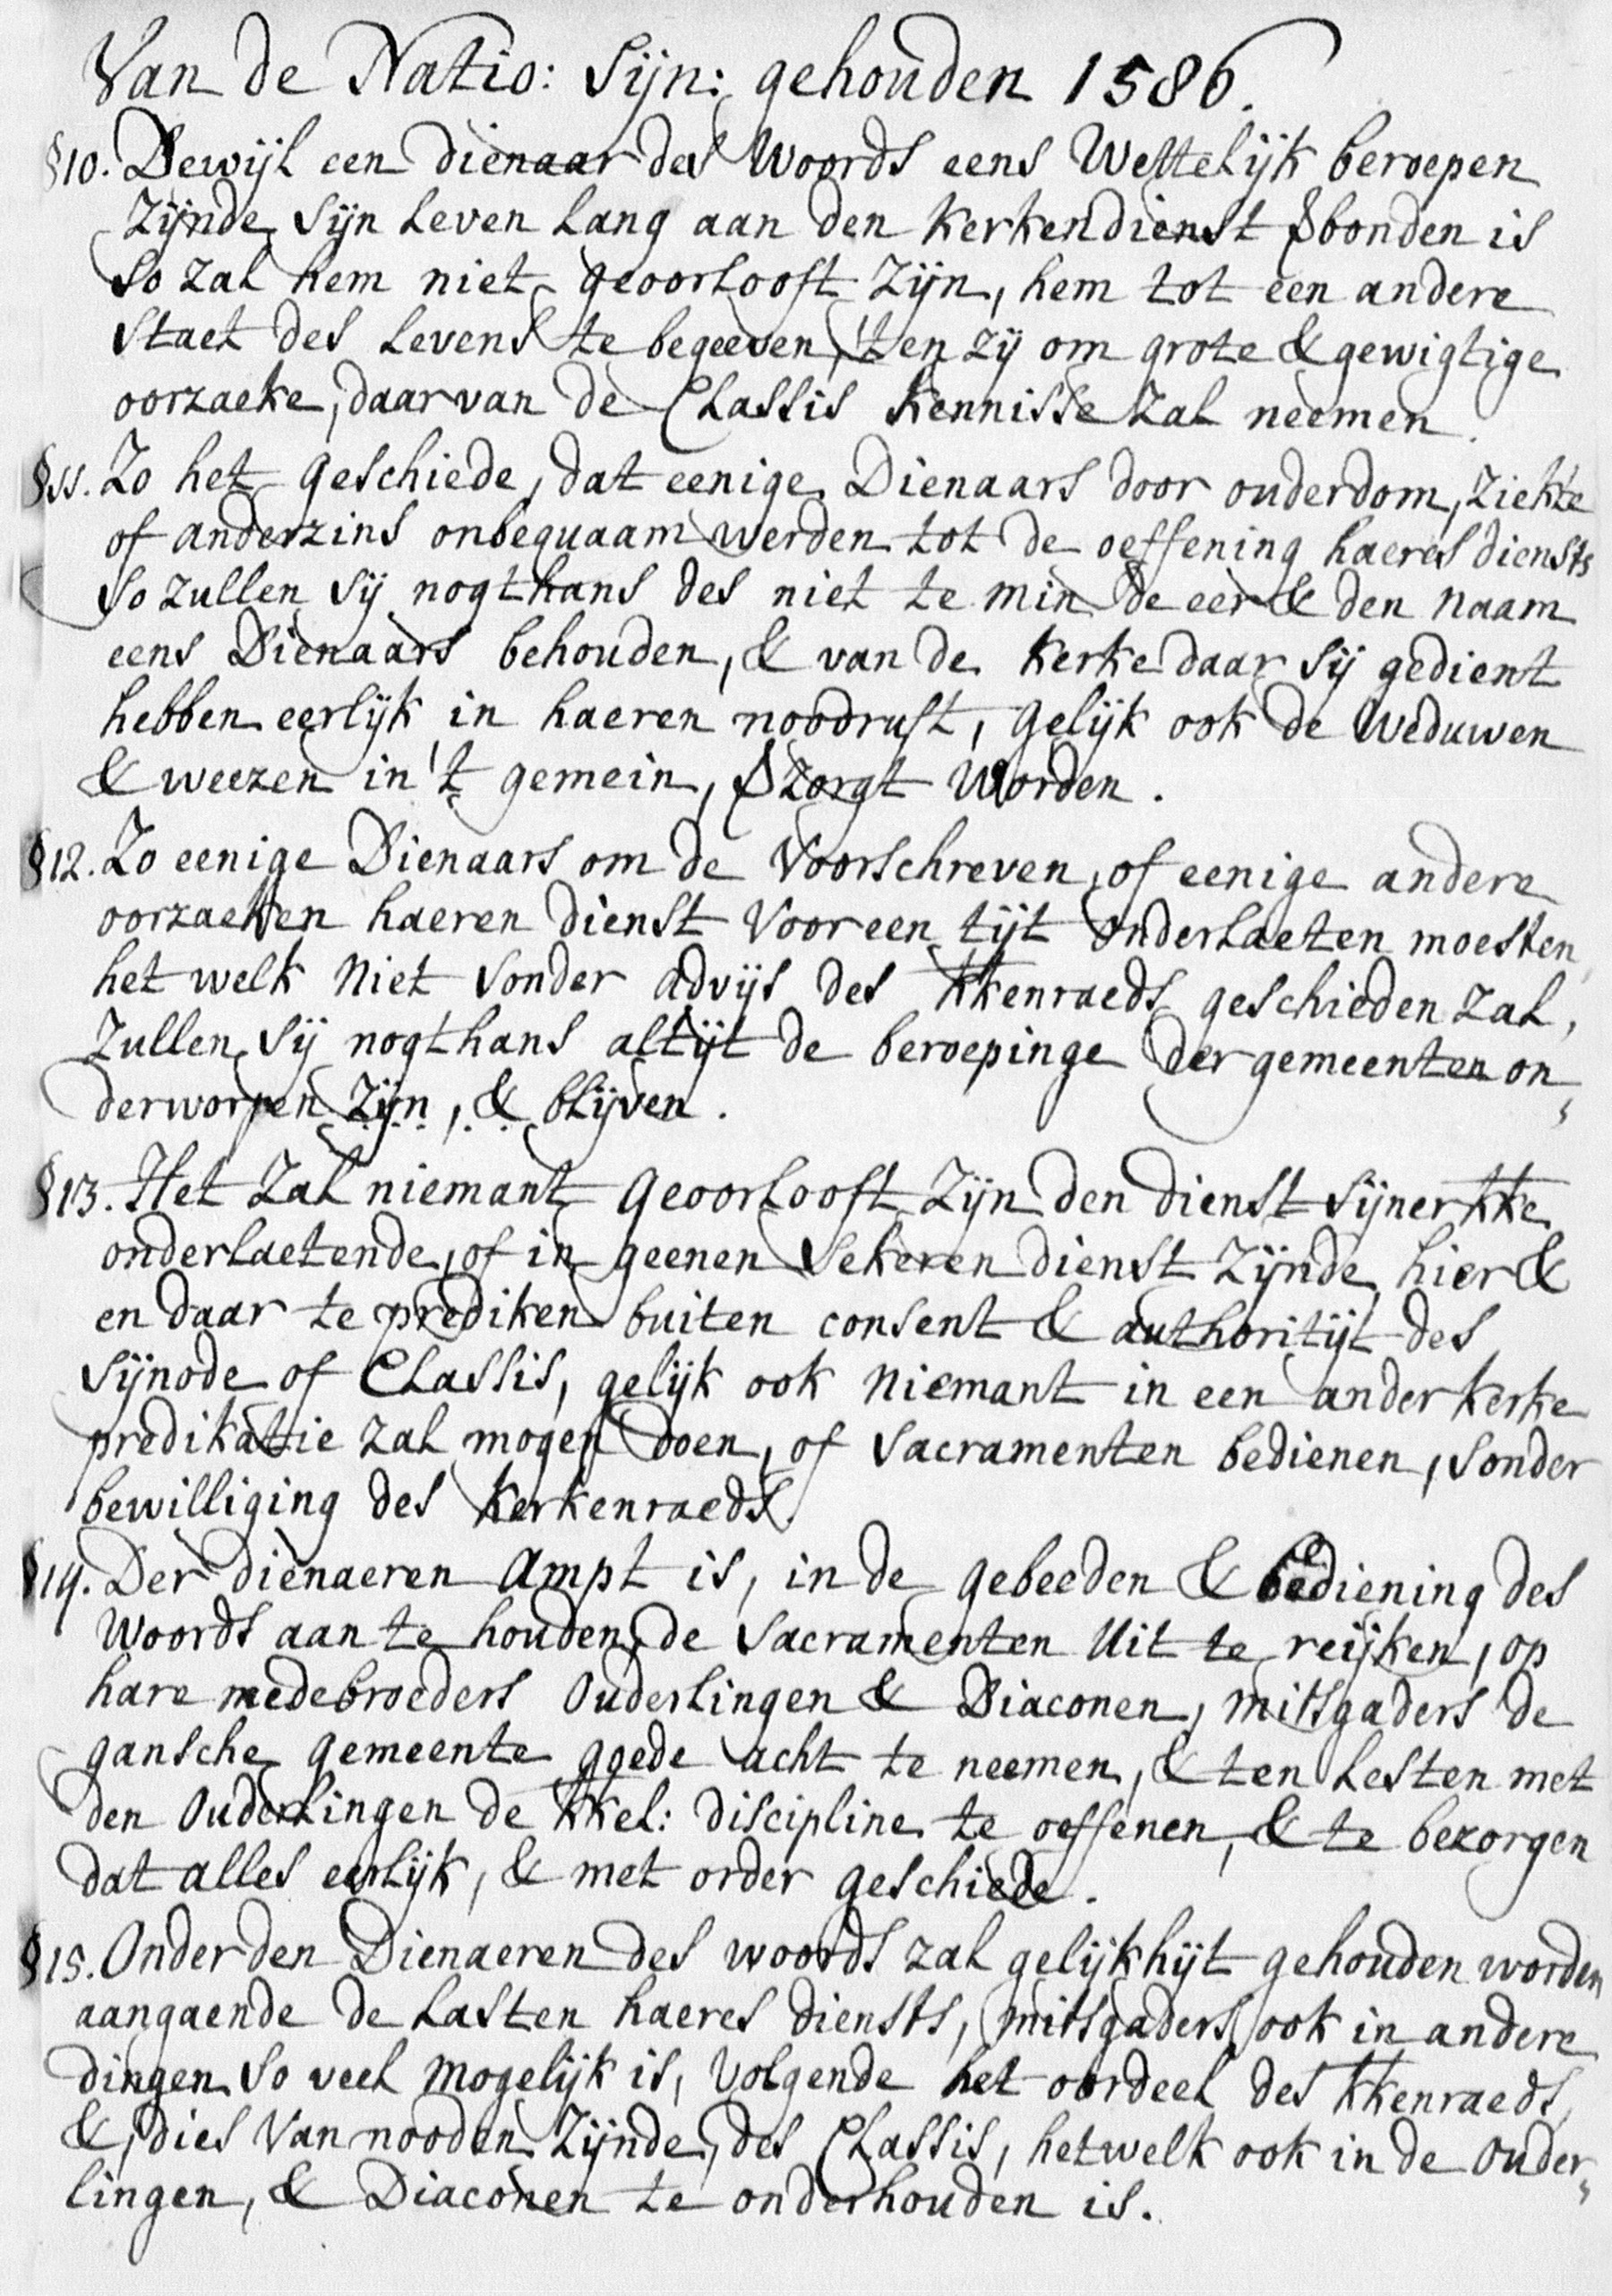 Van de Natio: Sijn: gehouden 1586.
§10. Dewijl een dienaar des Woords eens Wettelijk beroepen
zijnde, sijn leven lang aan den kerkendienst ꝟbonden is
so zal hem niet geoorlooft zijn, hem tot een andere
staet des levens te begeeven, 'ten zij om grote & gewigtige
oorzaeke, daar van de Classis kennisse zal neemen.
§11. Zo het geschiede, dat eenige Dienaars door ouderdom, ziekte
of anderzins onbequaam werden tot de oeffening haeres diensts
so zullen sij nogthans des niet te min de eer & den naam
eens Dienaars behouden, & van de kerke daar sij gedient
hebben eerlijk in haeren noodruft, gelijk ook de weduwen
& weezen in 't gemein, ꝟzorgt worden.
§12. Zo eenige Dienaars om de voorschreven, of eenige andere
oorzaeken haeren dienst voor een tijt onderlaeten moesten,
het welk niet sonder advijs des kkenraeds geschieden zal,
zullen sij nogthans altijt de beroepinge der gemeenten on„
derworpen zijn, & blijven.
§13. Het zal niemant geoorlooft zijn den dienst sijner kke
onderlaetende, of in geenen sekeren dienst zijnde, hier &
en daar te prediken buiten consent & authoritijt des
sijnode of Classis, gelijk ook niemant in een ander kerke
predikatie zal mogen doen, of sacramenten bedienen, sonder
bewilliging des kerkenraeds.
§14. Der dienaeren ampt is, in de gebeeden & bediening des
woords aan te houden, de sacramenten uit te reijken, op
hare medebroeders ouderlingen & Diaconen, mitsgaders de
gansche gemeente goede acht te neemen, & ten lesten met
den ouderlingen de kkel: discipline te oeffenen, & te bezorgen
dat alles eerlijk, & met order geschiede.
§15. Onder den Dienaeren des woords zal gelijkhijt gehouden worden
aangaende de lasten haeres diensts, mitsgaders ook in andere
dingen so veel mogelijk is, volgende het oordeel des kkenraeds,
&, dies van nooden zijnde, des Classis, hetwelk ook in de ouder„
lingen, & Diaconen te onderhouden is.